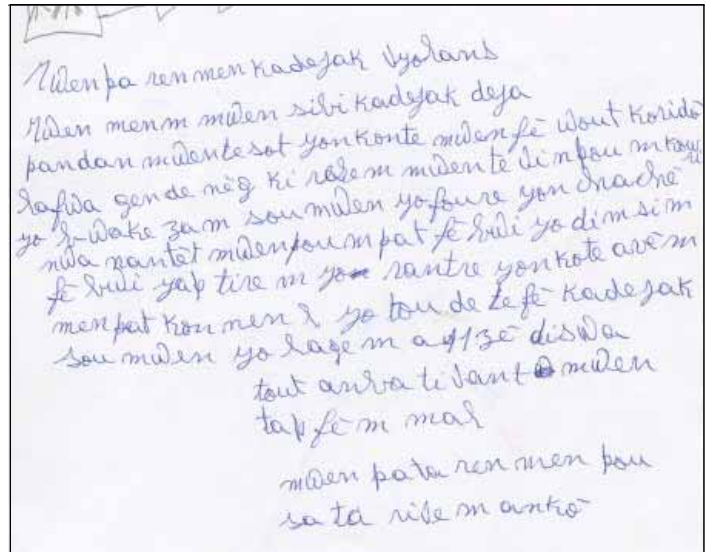 Mwen pa renmen kadejak vyolans
Mwen menm mwen sibi kadejak deja
pandan mwen te sot yon kote mwen fè wout koridò
lafwa gen de nèg ki rale m mwen te vin pou m kouri
yo brake zam sou mwen yo foure yon chache
nwa nan tèt mwen pou m pat fè bwi yo di m si m
fè bwi yap tire m yo rantre yon kote avè m
men pat konnen l yo tou de te fè kadejak
sou mwen yo lage m a 11zè diswa
tout anba ti vant mwen
tap fè m mal
mwen pata renmen pou
sa ta rive m ankò